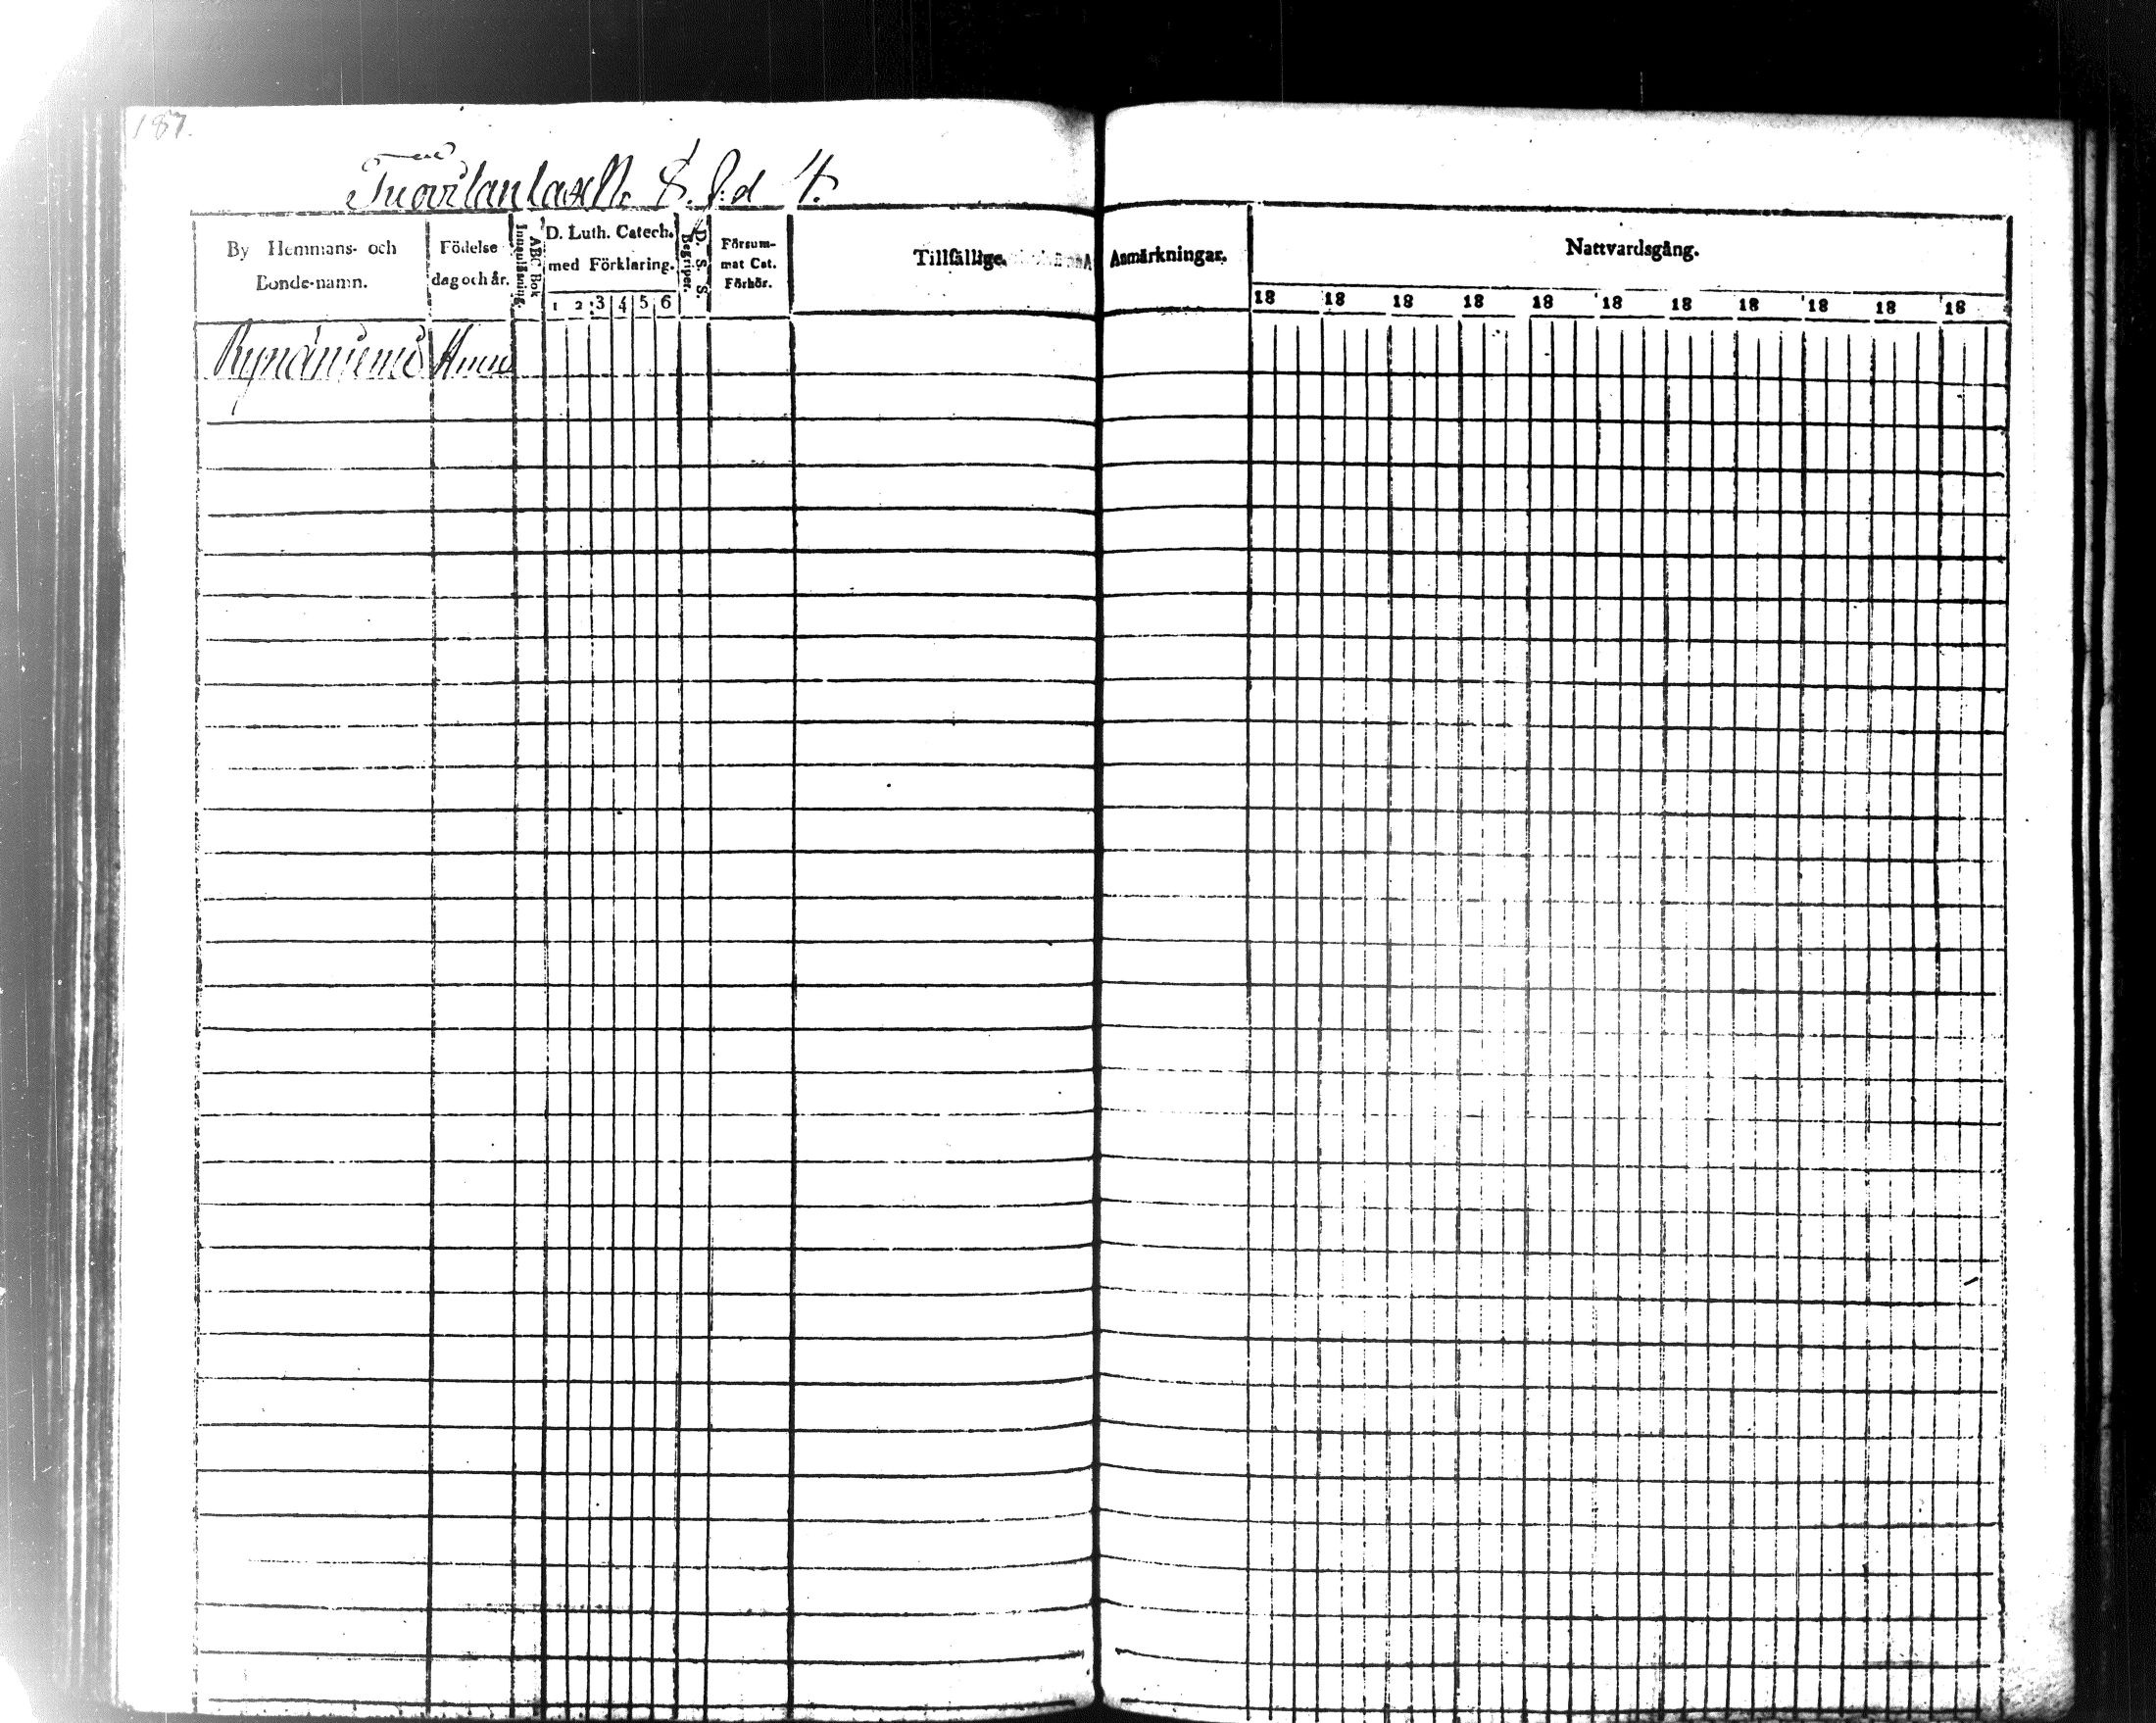 187.
Tuovilanlax No 8. S:d 4.
By Hemmans- och
Bonde-namn.
Födelse
dag och år.
ABC Bok
Innanläsning.
D. Luth. Catech.
med Förklaring.
1 2 3 4 5 6
D. S. S.
Begriper.
Försum-
mat Cat.
Förhör.
Tillfällige
Anmärkningar.
Nattvardsgång.
18 18 18 18 18 18 18 18 18 18 18
Rynäniemi